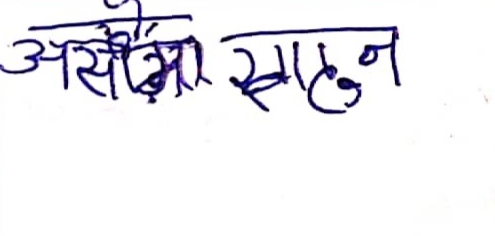 असीमा साहुन